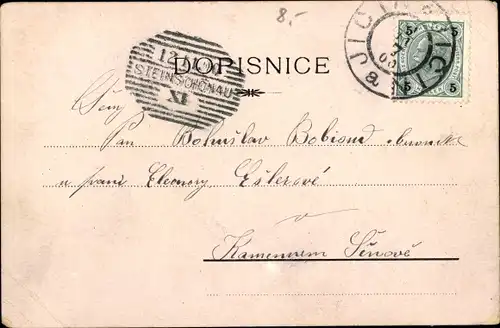 8,-
JIČÍN JIČÍN
a
5 5
5 5
12
STEINSCHÖNAU
XI
DOPISNICE
Pan Bohuslav
u paní Eleonory Eslerové
v
Kamenném Šenově